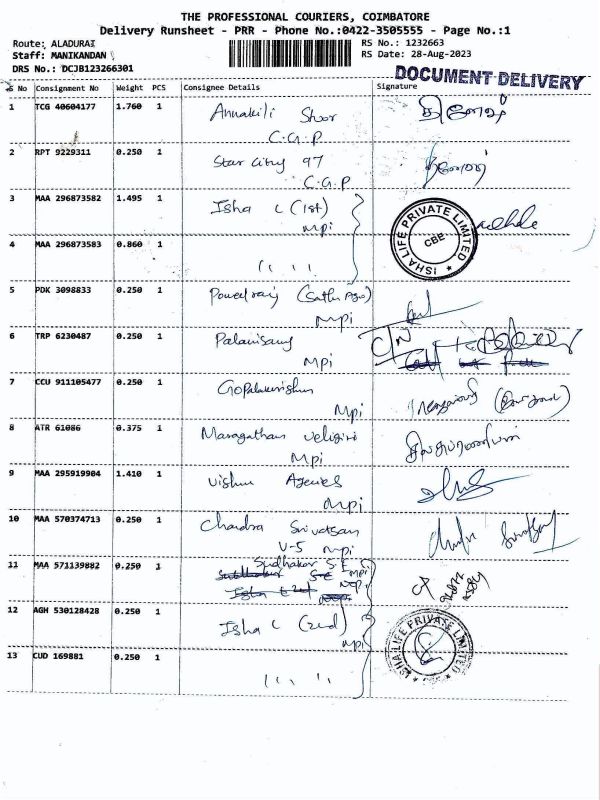 THE PROFESSIONAL COURIERS, COIMBATORE
Delivery Runsheet - PRR - Phone No.:0422-3505555 - Page No.:1
Route: ALADURAI
RS No.: 1232663
Staff: MANIKANDAN
RS Date: 28-Aug-2023
DRS No.: DCJB123266301
DOCUMENT DELIVERY
S No Consignment No Weight PCS Consignee Details Signature
1 TCG 40604177 1.760 1 Annakili
C.G.P
2 RPT 9229311 0.250 1 Star City 97
C.G.P
3 MAA 296873582 1.495 1 Isha L (1st)
mpi
ISHA LIFE PRIVATE LIMITED
CBE
4 MAA 296873583 0.860 1 " "
5 PDK 3098833 0.250 1
mpi
6 TRP 6230487 0.250 1 Palanisamy
C/N
mpi
7 CCU 911105477 0.250 1 Gopalakrishnan
mpi
8 ATR 61086 0.375 1 Maragatham Veligiri
mpi
9 MAA 295919904 1.410 1 Vishnu Agencies
mpi
10 MAA 570374713 0.250 1 Chandra Srivatsan
V-5 mpi
11 MAA 571139882 0.250 1 Sudhakar S.E
mpi
12 AGH 530128428 0.250 1 Isha L (2nd)
mpi
ISHA LIFE PRIVATE LIMITED
13 CUD 169881 0.250 1 " "